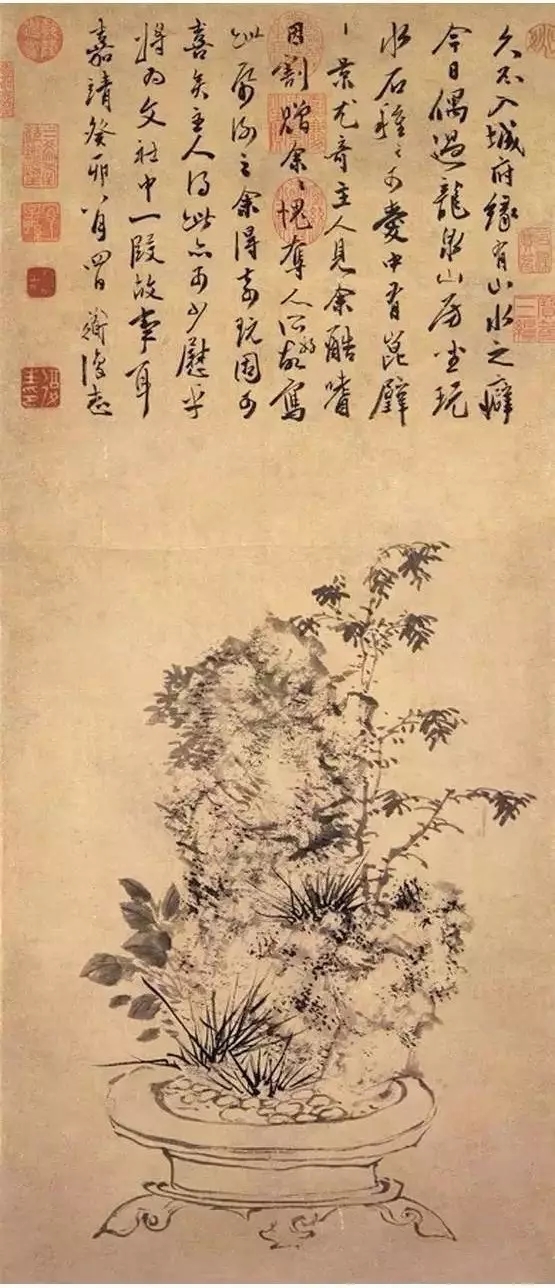 久不入城府緣有山水之癖
今日偶過龍泉山房坐玩
水石種々可愛中有崑璧
一景尤奇主人見余酷嗜
因割贈余々愧奪人所好故寫
此聊謝之余得奇玩固可
喜矣主人得此亦可少慰乎
將為文社中一段故事耳
嘉靖癸卯八月四日道復志